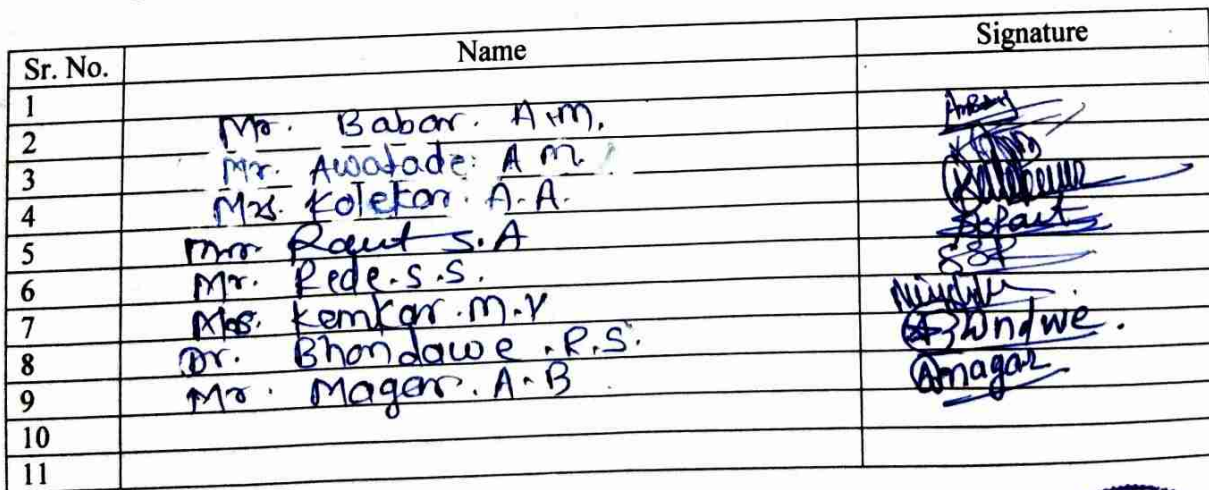 Sr. No. Name Signature
1
2 Mr. Babar. A.M.
3 Mr. Awatade. A M.
4 Mrs. Kolekar. A.A.
5 Mr. Raut S.A
6 Mr. Rede.S.S. SSR
7 Mrs. Kemkar.M.V
8 Dr. Bhondawe.R.S.
9 Mr. Magar. A.B Amagar
10
11